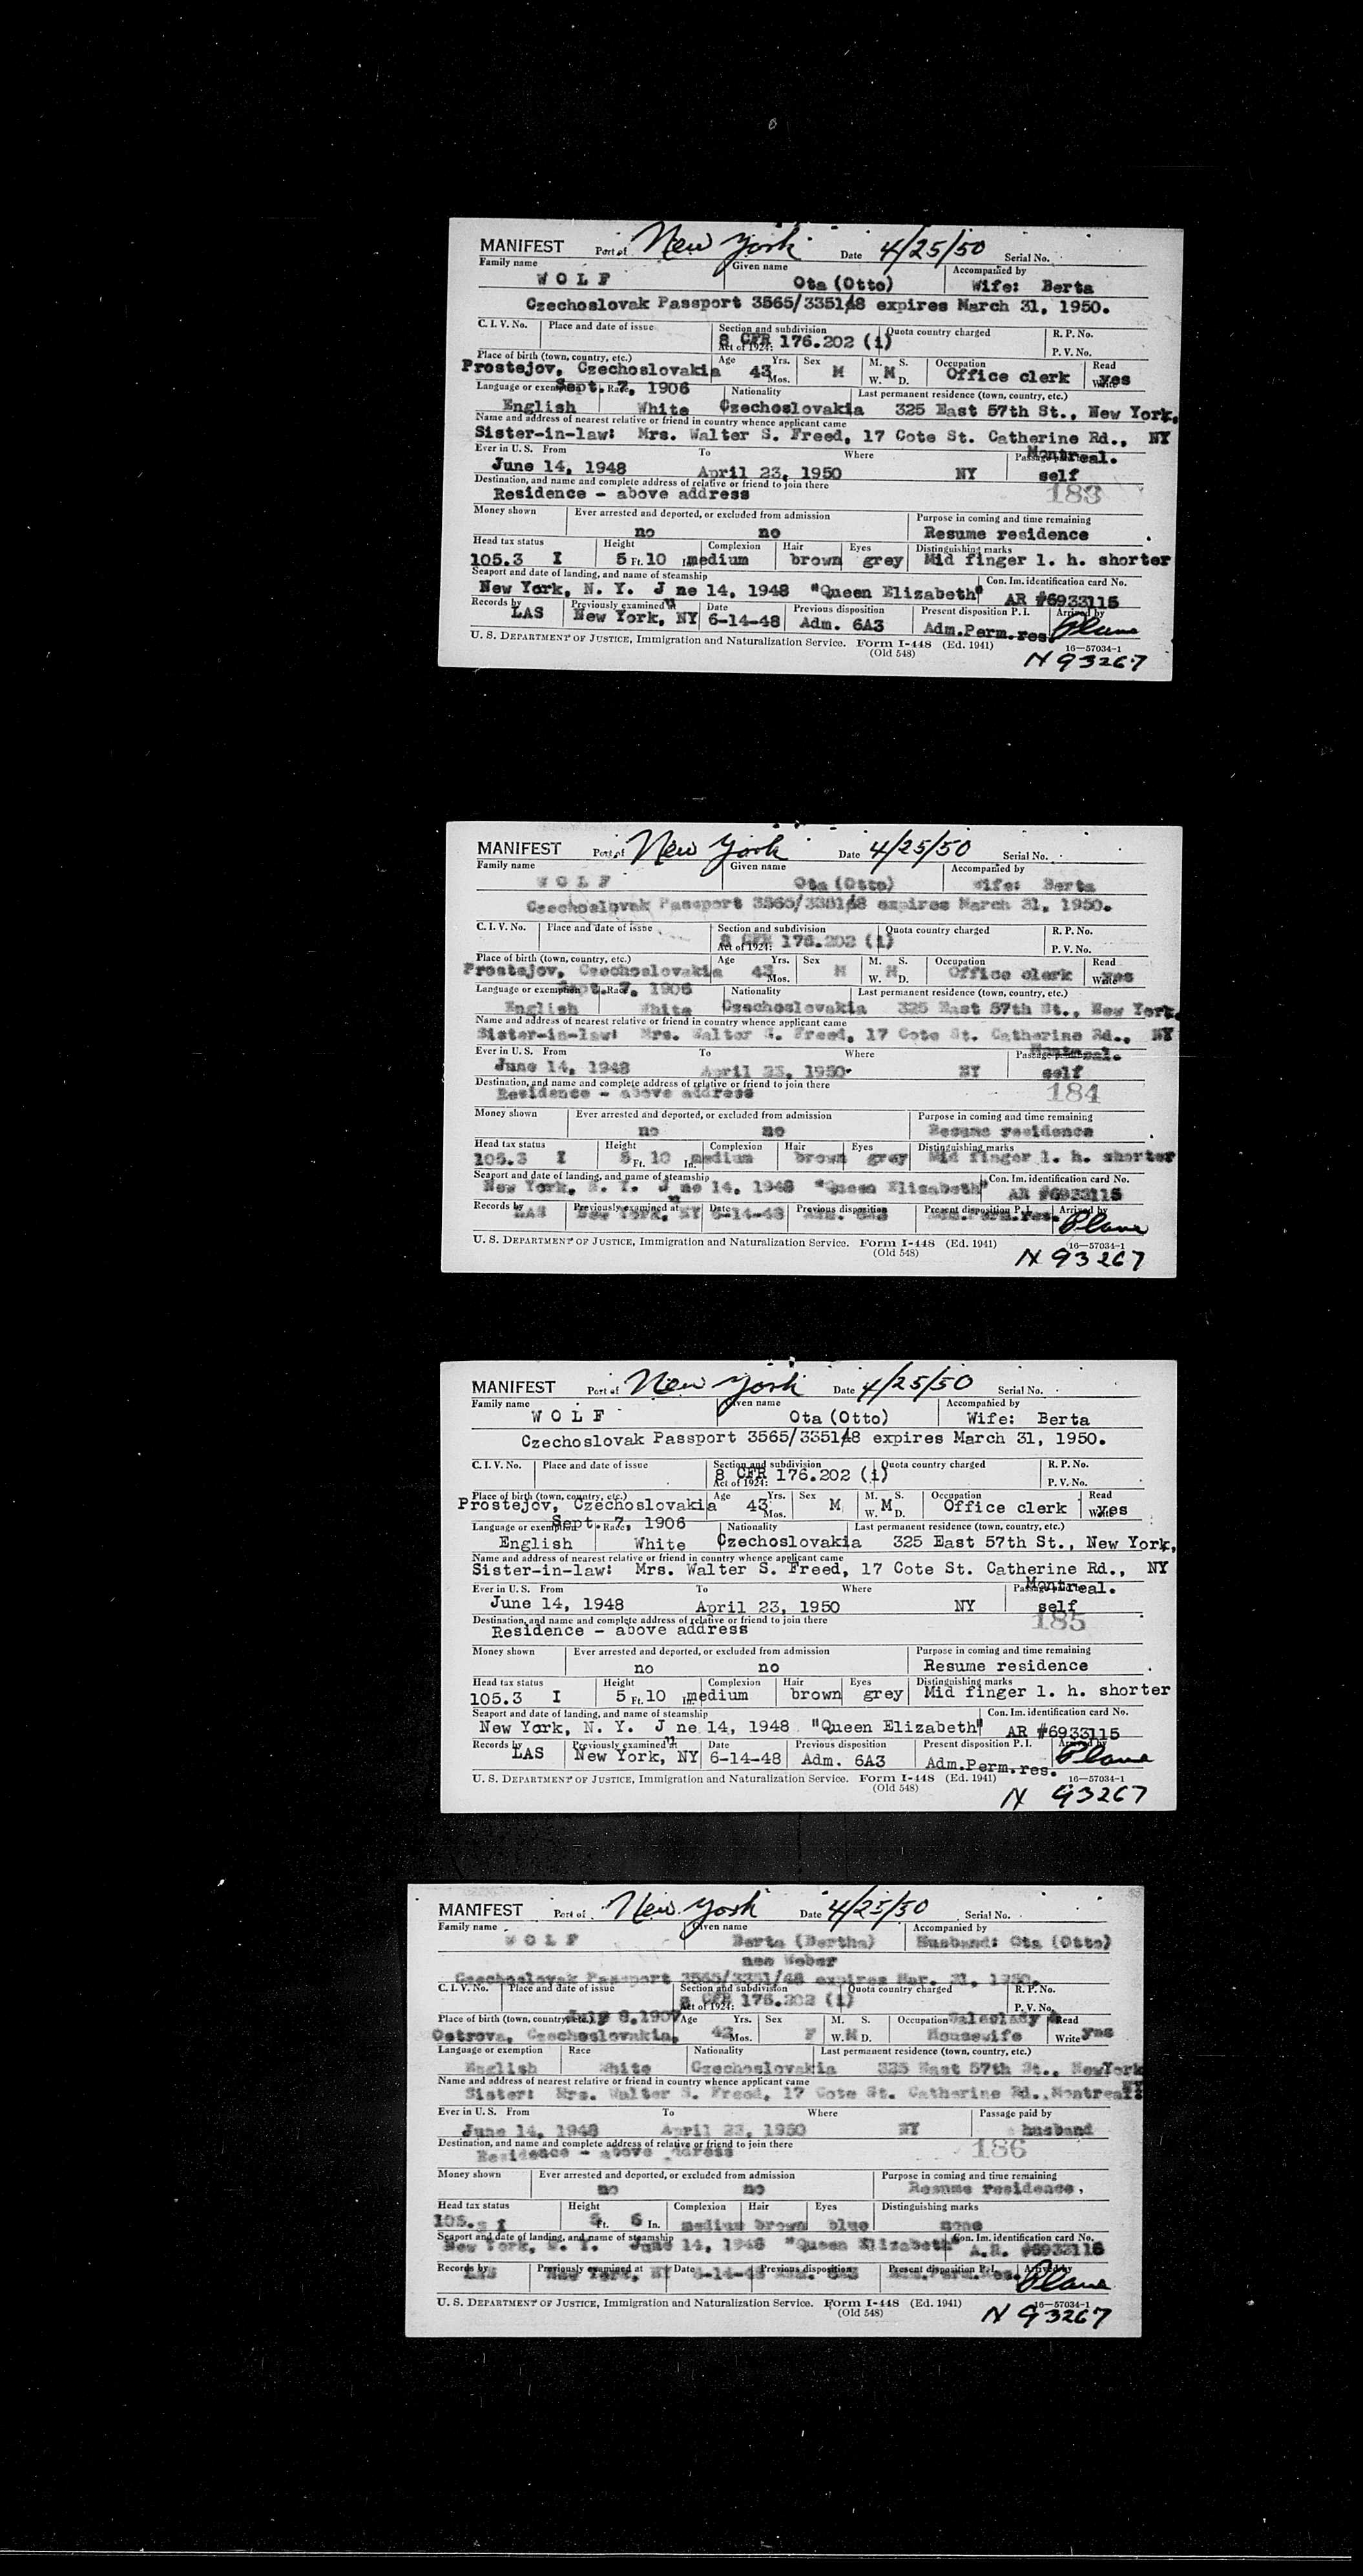 MANIFEST Port of New York Date 4/25/50 Serial No.
Family name Given name Accompanied by
W O L F Ota (Otto) Wife: Berta
Czechoslovak Passport 3565/3351/48 expires March 31, 1950.
C. I. V. No. Place and date of issue Section and subdivision Quota country charged R. P. No.
8 CFR 176.202 (i)
Act of 1924: P. V. No.
Place of birth (town, country, etc.) Age Yrs. Sex M. S. Occupation Read
Prostejov, Czechoslovakia 43 Mos. M W. M D. Office clerk Write yes
Language or exemption Sept. 7, 1906 Race Nationality Last permanent residence (town, country, etc.)
English White Czechoslovakia 325 East 57th St., New York,
Name and address of nearest relative or friend in country whence applicant came
Sister-in-law: Mrs. Walter S. Freed, 17 Cote St. Catherine Rd., NY
Ever in U. S. From To Where Passage paid by Montreal.
June 14, 1948 April 23, 1950 NY self
Destination, and name and complete address of relative or friend to join there
Residence - above address 183
Money shown Ever arrested and deported, or excluded from admission Purpose in coming and time remaining
no no Resume residence .
Head tax status Height Complexion Hair Eyes Distinguishing marks
105.3 I 5 Ft. 10 In. medium brown grey Mid finger l. h. shorter
Seaport and date of landing, and name of steamship Con. Im. identification card No.
New York, N. Y. J ne 14, 1948 "Queen Elizabeth" AR #6933115
Records by Previously examined at Date Previous disposition Present disposition P. I. Arrived by
LAS New York, NY 6-14-48 Adm. 6A3 Adm.Perm.res. Plane
U. S. DEPARTMENT OF JUSTICE, Immigration and Naturalization Service. Form I-448 (Ed. 1941) 16—57034-1
(Old 548) N 93267
MANIFEST Port of New York Date 4/25/50 Serial No.
Family name Given name Accompanied by
W O L F Ota (Otto) Wife: Berta
Czechoslovak Passport 3565/3351/48 expires March 31, 1950.
C. I. V. No. Place and date of issue Section and subdivision Quota country charged R. P. No.
8 CFR 176.202 (i)
Act of 1924: P. V. No.
Place of birth (town, country, etc.) Age Yrs. Sex M. S. Occupation Read
Prostejov, Czechoslovakia 43 Mos. M W. M D. Office clerk Write yes
Language or exemption Sept. 7, 1906 Race Nationality Last permanent residence (town, country, etc.)
English White Czechoslovakia 325 East 57th St., New York,
Name and address of nearest relative or friend in country whence applicant came
Sister-in-law: Mrs. Walter S. Freed, 17 Cote St. Catherine Rd., NY
Ever in U. S. From To Where Passage paid by Montreal.
June 14, 1948 April 23, 1950 NY self
Destination, and name and complete address of relative or friend to join there
Residence - above address 184
Money shown Ever arrested and deported, or excluded from admission Purpose in coming and time remaining
no no Resume residence .
Head tax status Height Complexion Hair Eyes Distinguishing marks
105.3 I 5 Ft. 10 In. medium brown grey Mid finger l. h. shorter
Seaport and date of landing, and name of steamship Con. Im. identification card No.
New York, N. Y. J ne 14, 1948 "Queen Elizabeth" AR #6933115
Records by Previously examined at Date Previous disposition Present disposition P. I. Arrived by
LAS New York, NY 6-14-48 Adm. 6A3 Adm.Perm.res. Plane
U. S. DEPARTMENT OF JUSTICE, Immigration and Naturalization Service. Form I-448 (Ed. 1941) 16—57034-1
(Old 548) N 93267
MANIFEST Port of New York Date 4/25/50 Serial No.
Family name Given name Accompanied by
W O L F Ota (Otto) Wife: Berta
Czechoslovak Passport 3565/3351/48 expires March 31, 1950.
C. I. V. No. Place and date of issue Section and subdivision Quota country charged R. P. No.
8 CFR 176.202 (i)
Act of 1924: P. V. No.
Place of birth (town, country, etc.) Age Yrs. Sex M. S. Occupation Read
Prostejov, Czechoslovakia 43 Mos. M W. M D. Office clerk Write yes
Language or exemption Sept. 7, 1906 Race Nationality Last permanent residence (town, country, etc.)
English White Czechoslovakia 325 East 57th St., New York,
Name and address of nearest relative or friend in country whence applicant came
Sister-in-law: Mrs. Walter S. Freed, 17 Cote St. Catherine Rd., NY
Ever in U. S. From To Where Passage paid by Montreal.
June 14, 1948 April 23, 1950 NY self
Destination, and name and complete address of relative or friend to join there
Residence - above address 185
Money shown Ever arrested and deported, or excluded from admission Purpose in coming and time remaining
no no Resume residence .
Head tax status Height Complexion Hair Eyes Distinguishing marks
105.3 I 5 Ft. 10 In. medium brown grey Mid finger l. h. shorter
Seaport and date of landing, and name of steamship Con. Im. identification card No.
New York, N. Y. J ne 14, 1948 "Queen Elizabeth" AR #6933115
Records by Previously examined at Date Previous disposition Present disposition P. I. Arrived by
LAS New York, NY 6-14-48 Adm. 6A3 Adm.Perm.res. Plane
U. S. DEPARTMENT OF JUSTICE, Immigration and Naturalization Service. Form I-448 (Ed. 1941) 16—57034-1
(Old 548) N 93267
MANIFEST Port of New York Date 4/25/50 Serial No.
Family name Given name Accompanied by
W O L F Berta (Bertha) Husband: Ota (Otto)
nee Weber
Czechoslovak Passport 3565/3351/48 expires Mar. 31, 1950.
C. I. V. No. Place and date of issue Section and subdivision Quota country charged R. P. No.
8 CFR 176.202 (i)
Act of 1924: P. V. No.
Place of birth (town, country, etc.) July 8, 1907 Age Yrs. Sex M. S. Occupation Saleslady Read
Ostrova, Czechoslovakia, 42 Mos. F W. M D. Housewife Write yes
Language or exemption Race Nationality Last permanent residence (town, country, etc.)
English White Czechoslovakia 325 East 57th St., NewYork
Name and address of nearest relative or friend in country whence applicant came
Sister: Mrs. Walter S. Freed, 17 Cote St. Catherine Rd., Montreal.
Ever in U. S. From To Where Passage paid by
June 14, 1948 April 23, 1950 NY husband
Destination, and name and complete address of relative or friend to join there
Residence - above address 186
Money shown Ever arrested and deported, or excluded from admission Purpose in coming and time remaining
no no Resume residence.
Head tax status Height Complexion Hair Eyes Distinguishing marks
105.3 I 5 Ft. 6 In. medium brown blue none
Seaport and date of landing, and name of steamship Con. Im. identification card No.
New York, N. Y. June 14, 1948 "Queen Elizabeth" A.R. #6933116
Records by Previously examined at Date Previous disposition Present disposition P. I. Arrived by
LAS New York, NY 6-14-48 Adm. 6A3 Adm.Perm.res. Plane
U. S. DEPARTMENT OF JUSTICE, Immigration and Naturalization Service. Form I-448 (Ed. 1941) 16—57034-1
(Old 548) N 93267